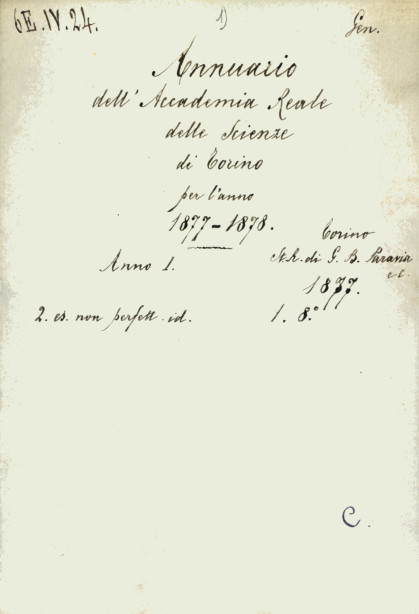 6E.IV.24.
1)
Gen.
Annuario
dell'Accademia Reale
delle Scienze
di Torino
per l'anno
1877-1878.
Anno 1.
Torino
St. R. di G. B. Paravia
e C.
1877.
2. es. non perfett. id.
1. 8.°
C.